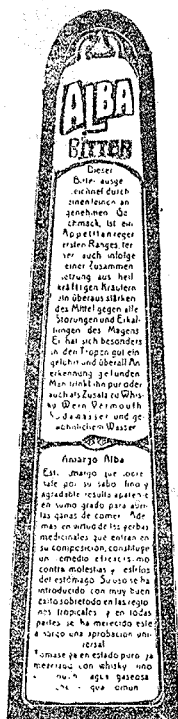 ALBA
BITTER
Dieser
Bitter ausge
zeichnet durch
einen feinen an
genehmen Ge
schmack, ist ein
Appetitanreger
ersten Ranges, fer
ner auch infolge
einer Zusammen
setzung aus heil
kräftigen Kräutern
ein überaus stärken
des Mittel gegen alle
Störungen und Erkäl
tungen des Magens
Er hat sich besonders
in den Tropen gut ein
geführt und überall An
erkennung gefunden
Man trinkt ihn pur oder
auch als Zusatz zu Whis
ky Wein Vermouth
Sodawasser und ge
wöhnlichem Wasser
Amargo Alba
Este amargo que sobre
sale por su sabor fino y
agradable resulta aperitivo
en sumo grado para abrir
las ganas de comer Ade
mas en virtud de las yerbas
medicinales que entran en
su composición, constituye
un remedio eficacisimo
contra molestias y resfrios
del estómago Su uso se ha
introducido con muy buen
exito sobretodo en las regio
nes tropicales y en todas
partes se ha merecido este
amargo una aprobación uni
versal
Tomase ya en estado puro ya
mezclado con whisky vino
agua gaseosa
agua comun